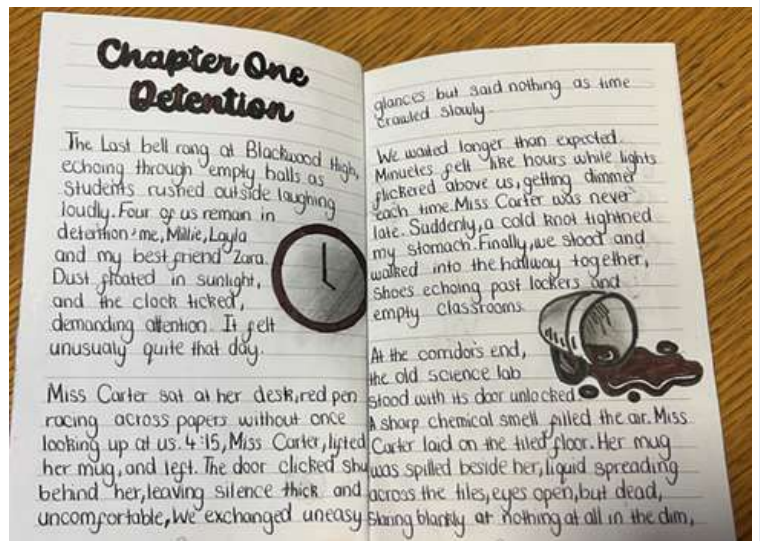 Chapter One
Detention
The Last bell rang at Blackwood High,
echoing through empty halls as
Students rushed outside laughing
loudly. Four of us remain in
detention: me, Millie, Layla
and my best friend Zara.
Dust floated in sunlight,
and the clock ticked,
demanding attention. It felt
unusualy quite that day.
Miss Carter sat at her desk, red pen
racing across papers without once
looking up at us. 4:15, Miss Carter, lifted
her mug, and left. The door clicked shu
behind her, leaving silence thick and
uncomfortable, We exchanged uneasy
glances but said nothing as time
crawled slowly
We waited longer than expected.
Minuetes felt like hours while lights
flickered above us, getting dimmer
each time. Miss Carter was never
late. Suddenly, a cold knot tightned
my stomach. Finally, we stood and
walked into the hallway together,
Shoes echoing past lockers and
empty classrooms.
At the corridors end,
the old science lab
stood with its door unlocked.
A sharp chemical smell filled the air. Miss
Carter laid on the tiled floor. Her mug
was spilled beside her, liquid spreading
across the tiles, eyes open, but dead,
Staring blankly at nothing at all in the dim,